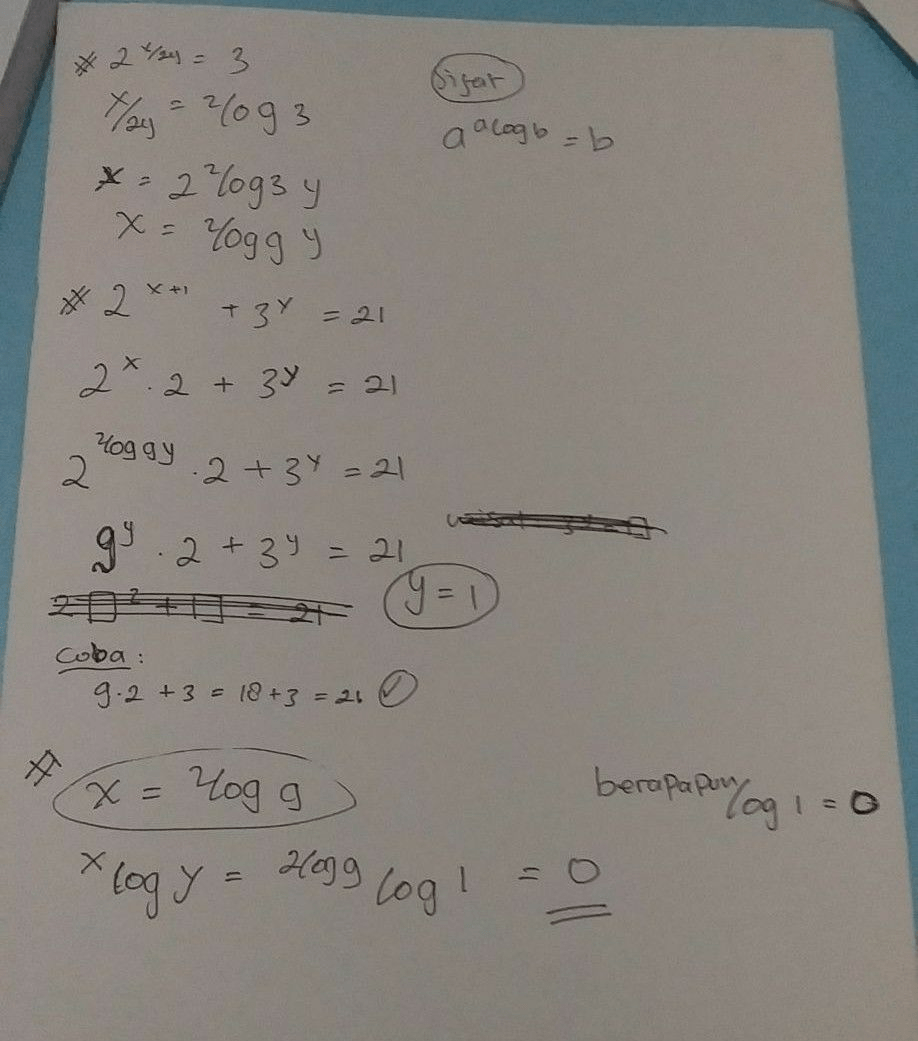 # 2^(x/2y) = 3
Sifat
x/2y = ²log 3
a^(ᵃlog b) = b
x = 2 ²log 3 y
x = ²log 9 y
# 2^(x+1) + 3^y = 21
2^x . 2 + 3^y = 21
2^(²log 9 y) . 2 + 3^y = 21
9^y . 2 + 3^y = 21
y = 1
Coba :
9.2 + 3 = 18 + 3 = 21 ✓
# x = ²log 9
berapapun log 1 = 0
ˣlog y = ^(²log 9) log 1 = 0